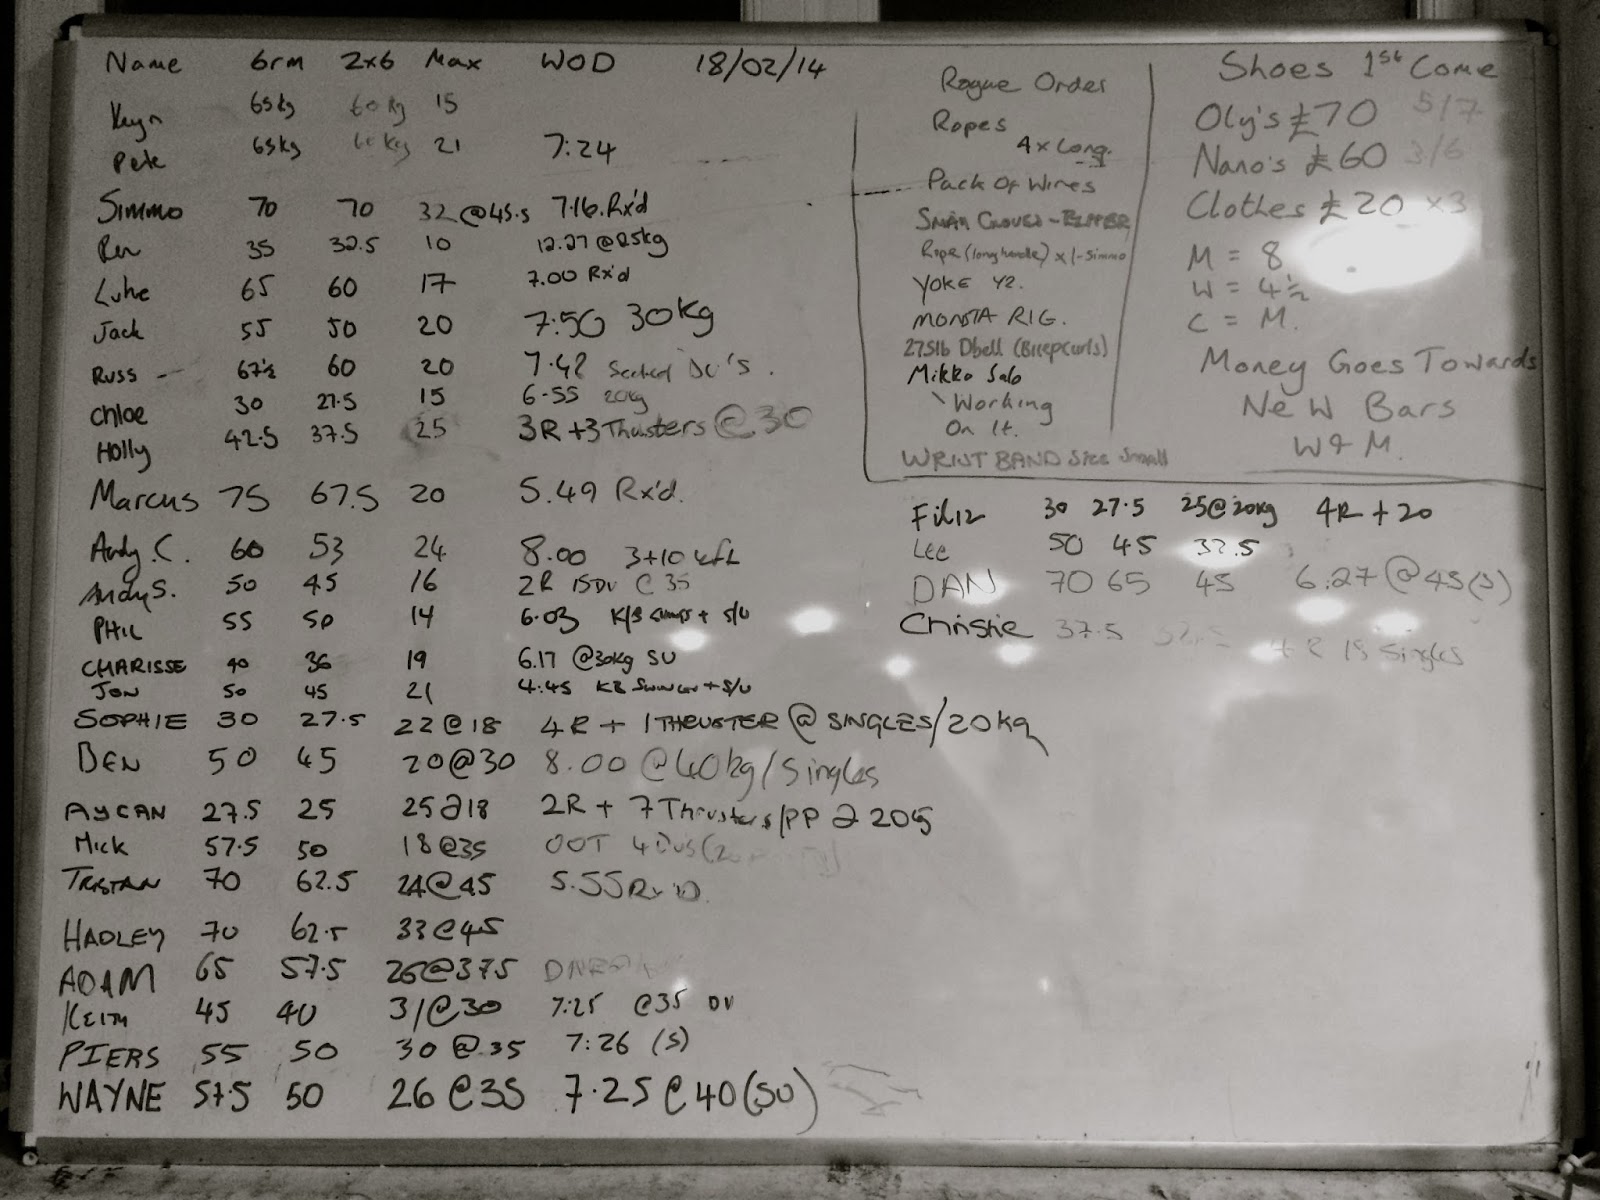 Name 6rm 2x6 Max WOD 18/02/14
65kg 60kg 15
Pete 65kg 60kg 21 7:24
Simmo 70 70 32@45.5 7.16.Rx'd
Ren 35 32.5 10 12.27 @25kg
Luke 65 60 17 7.00 Rx'd
Jack 55 50 20 7:50 30kg
Russ - 67½ 60 20 7.42 DU's.
Chloe 30 27.5 15 6.55 20kg
Holly 42.5 37.5 25 3R +3 Thrusters @ 30
Marcus 75 67.5 20 5.49 Rx'd.
Andy.C. 60 53 24 8.00 3+10
Andy S. 50 45 16 2R 15DU @ 35
PHIL 55 50 14 6.03 K/B + S/U
CHARISSE 40 36 19 6.17 @30kg SU
JON 50 45 21 4:45 KB + S/U
SOPHIE 30 27.5 22@18 4R + 1 THRUSTER @ SINGLES/20kg
BEN 50 45 20@30 8.00 @40kg/Singles
AYCAN 27.5 25 25@18 2R + 7 Thrusters/PP @ 20
Mick 57.5 50 18@35 OOT 4 DUs
TRISTAN 70 62.5 24@45 5.55 Rx'D.
HADLEY 70 62.5 33@45
ADAM 65 57.5 26@37.5
KEITH 45 40 31@30 7:25 @35 DU
PIERS 55 50 30 @ 35 7:26 (S)
WAYNE 57.5 50 26 @35 7.25 @ 40 (SU)
Rogue Order
Ropes
4 x Long.
Pack Of Wires
Rope (long handle) x 1 - Simmo
YOKE Y2.
MONSTA RIG.
275lb Dbell (Bicep curls)
Mikko Salo
\ Working
On It.
WRIST BAND Size Small
Shoes 1st Come
Oly's £70 5/7
Nano's £60 3/6
Clothes £20 x3
M = 8
W = 4½
C = M.
Money Goes Towards
New Bars
W & M.
Filiz 30 27.5 25@20kg 4R + 20
Lee 50 45 32.5
DAN 70 65 45 6.27 @45(S)
Christie 37.5 32.5 4 R 18 Singles